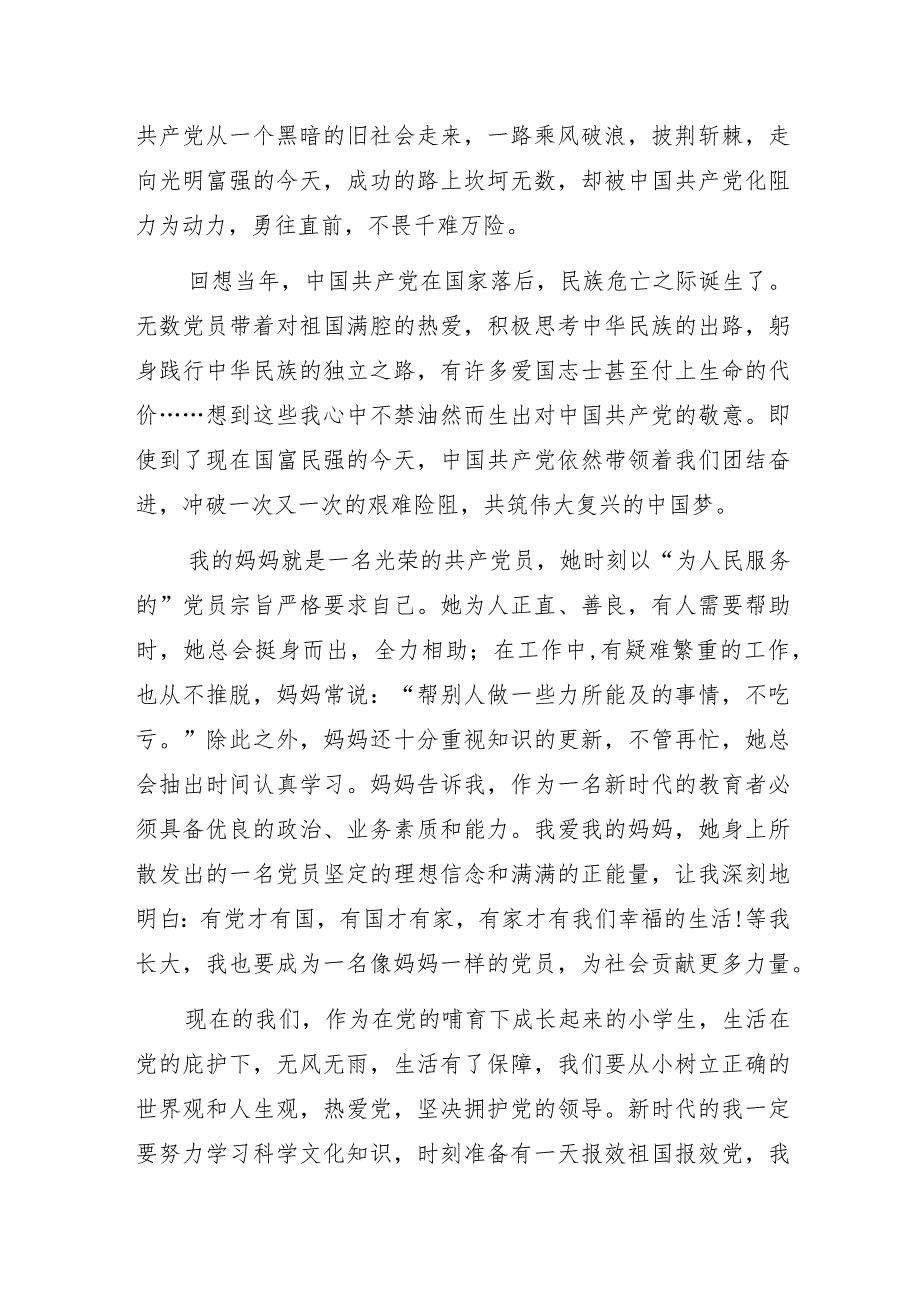 共产党从一个黑暗的旧社会走来，一路乘风破浪，披荆斩棘，走
向光明富强的今天，成功的路上坎坷无数，却被中国共产党化阻
力为动力，勇往直前，不畏千难万险。
回想当年，中国共产党在国家落后，民族危亡之际诞生了。
无数党员带着对祖国满腔的热爱，积极思考中华民族的出路，躬
身践行中华民族的独立之路，有许多爱国志士甚至付上生命的代
价……想到这些我心中不禁油然而生出对中国共产党的敬意。即
使到了现在国富民强的今天，中国共产党依然带领着我们团结奋
进，冲破一次又一次的艰难险阻，共筑伟大复兴的中国梦。
我的妈妈就是一名光荣的共产党员，她时刻以“为人民服务
的”党员宗旨严格要求自己。她为人正直、善良，有人需要帮助
时，她总会挺身而出，全力相助；在工作中,有疑难繁重的工作，
也从不推脱，妈妈常说：“帮别人做一些力所能及的事情，不吃
亏。”除此之外，妈妈还十分重视知识的更新，不管再忙，她总
会抽出时间认真学习。妈妈告诉我，作为一名新时代的教育者必
须具备优良的政治、业务素质和能力。我爱我的妈妈，她身上所
散发出的一名党员坚定的理想信念和满满的正能量，让我深刻地
明白：有党才有国，有国才有家，有家才有我们幸福的生活!等我
长大，我也要成为一名像妈妈一样的党员，为社会贡献更多力量。
现在的我们，作为在党的哺育下成长起来的小学生，生活在
党的庇护下，无风无雨，生活有了保障，我们要从小树立正确的
世界观和人生观，热爱党，坚决拥护党的领导。新时代的我一定
要努力学习科学文化知识，时刻准备有一天报效祖国报效党，我